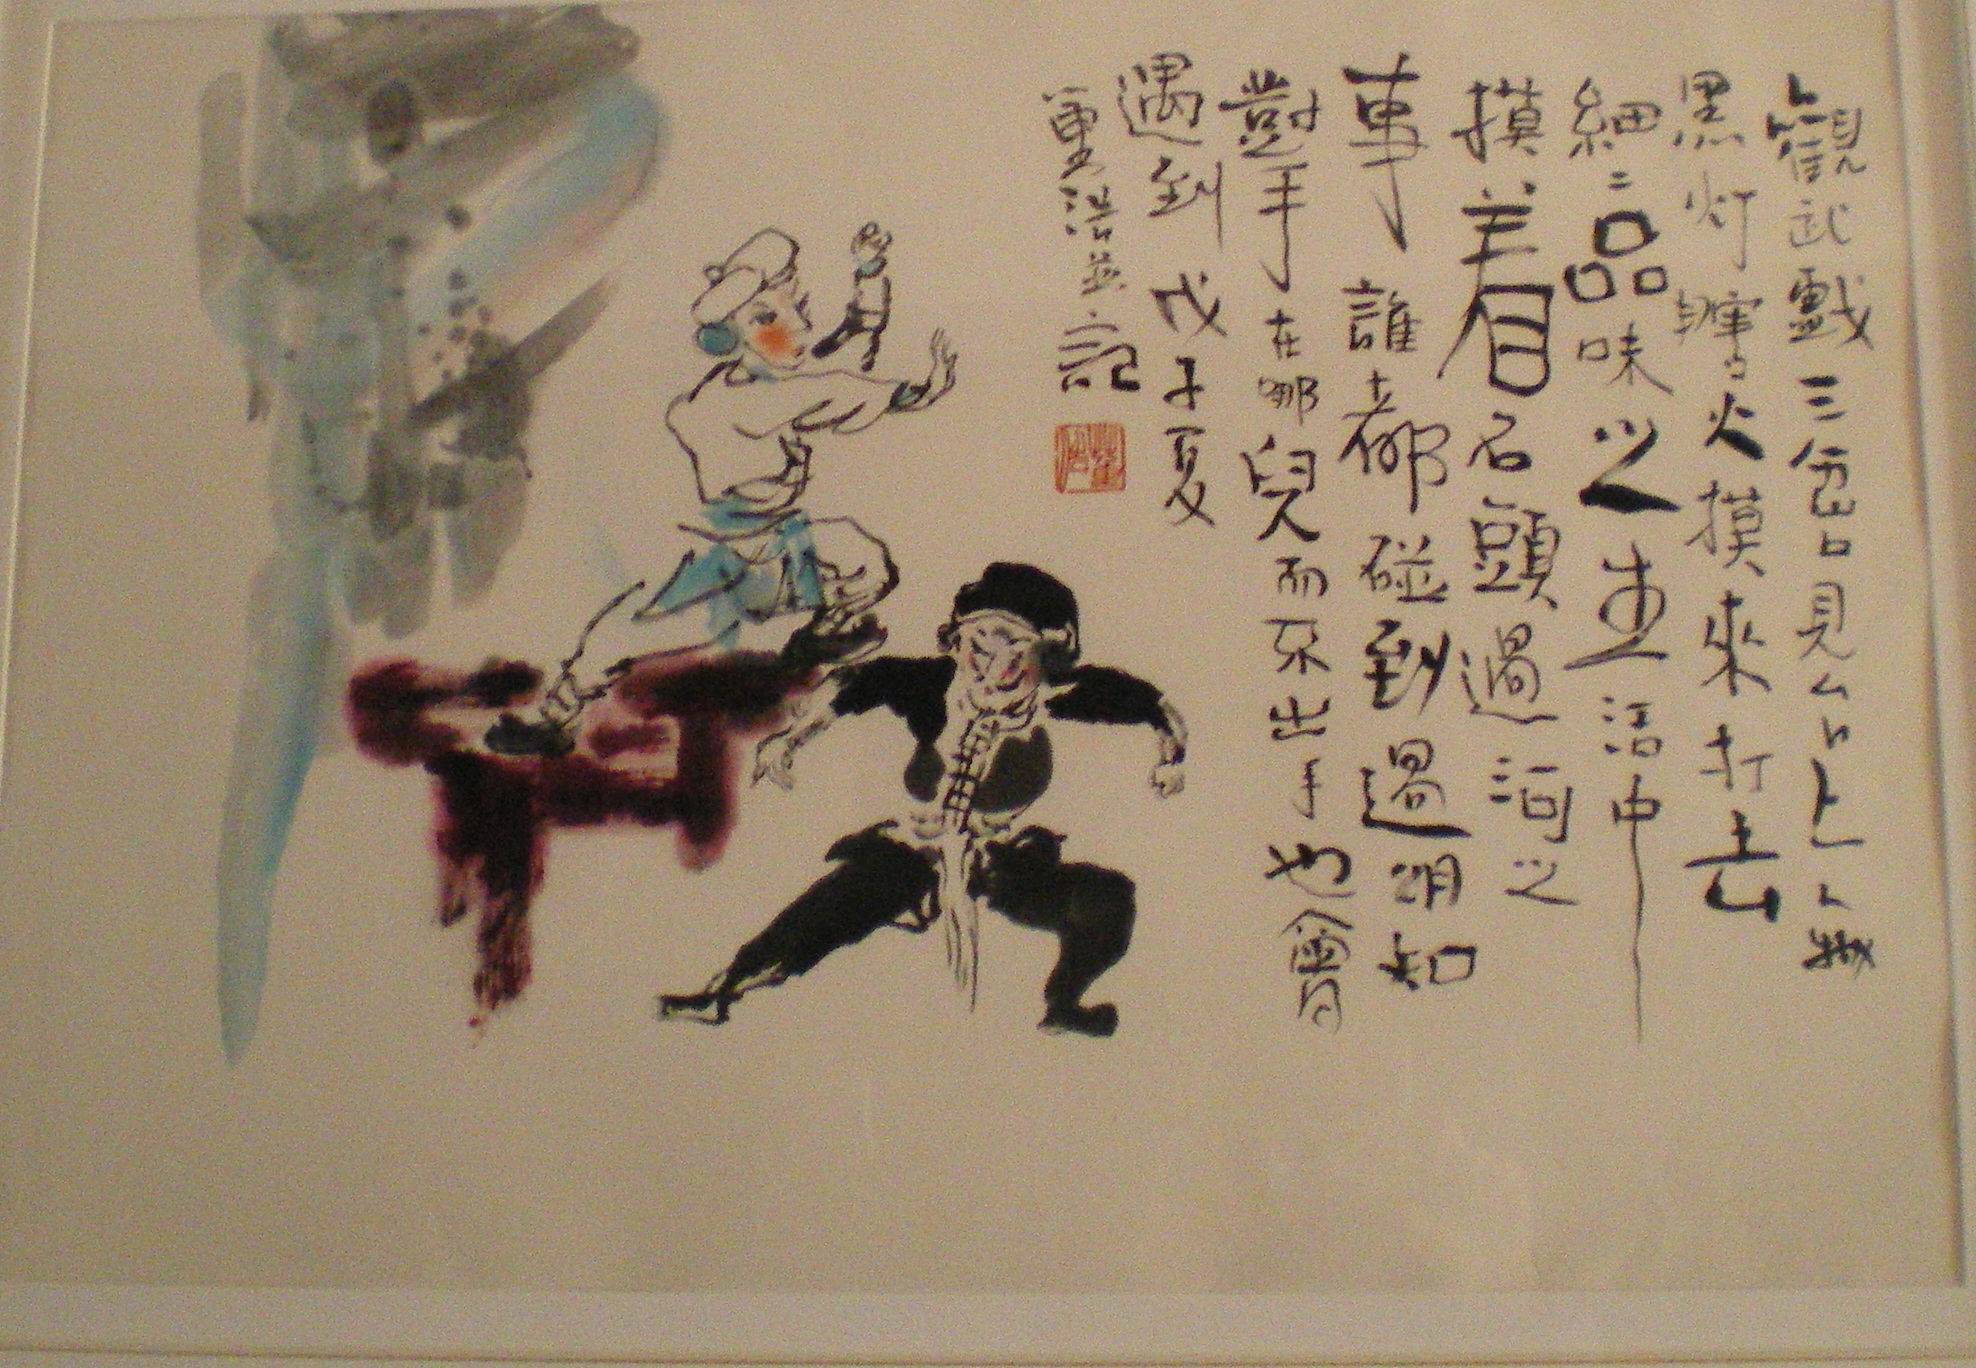 觀武戲三岔口見台上一城
黑灯瞎火摸來打去
細二品味之生活中
摸着石頭過河之
事誰都碰到過明知
對手在哪兒而不出手也會
遇到 戊子夏
浩並記